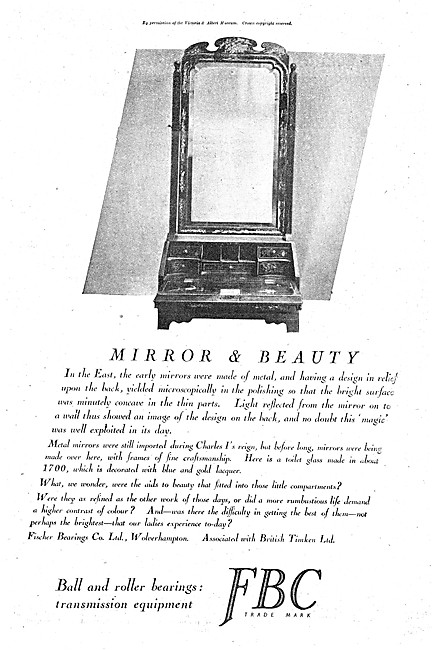 By permission of the Victoria & Albert Museum. Crown copyright reserved.
MIRROR & BEAUTY
In the East, the early mirrors were made of metal, and having a design in relief
upon the back, yielded microscopically in the polishing so that the bright surface
was minutely concave in the thin parts. Light reflected from the mirror on to
a wall thus showed an image of the design on the back, and no doubt this 'magic'
was well exploited in its day.
Metal mirrors were still imported during Charles I's reign, but before long, mirrors were being
made over here, with frames of fine craftsmanship. Here is a toilet glass made in about
1700, which is decorated with blue and gold lacquer.
What, we wonder, were the aids to beauty that fitted into those little compartments?
Were they as refined as the other work of those days, or did a more rumbustious life demand
a higher contrast of colour? And—was there the difficulty in getting the best of them—not
perhaps the brightest—that our ladies experience to-day?
Fischer Bearings Co. Ltd., Wolverhampton. Associated with British Timken Ltd.
Ball and roller bearings:
transmission equipment
FBC
TRADE MARK